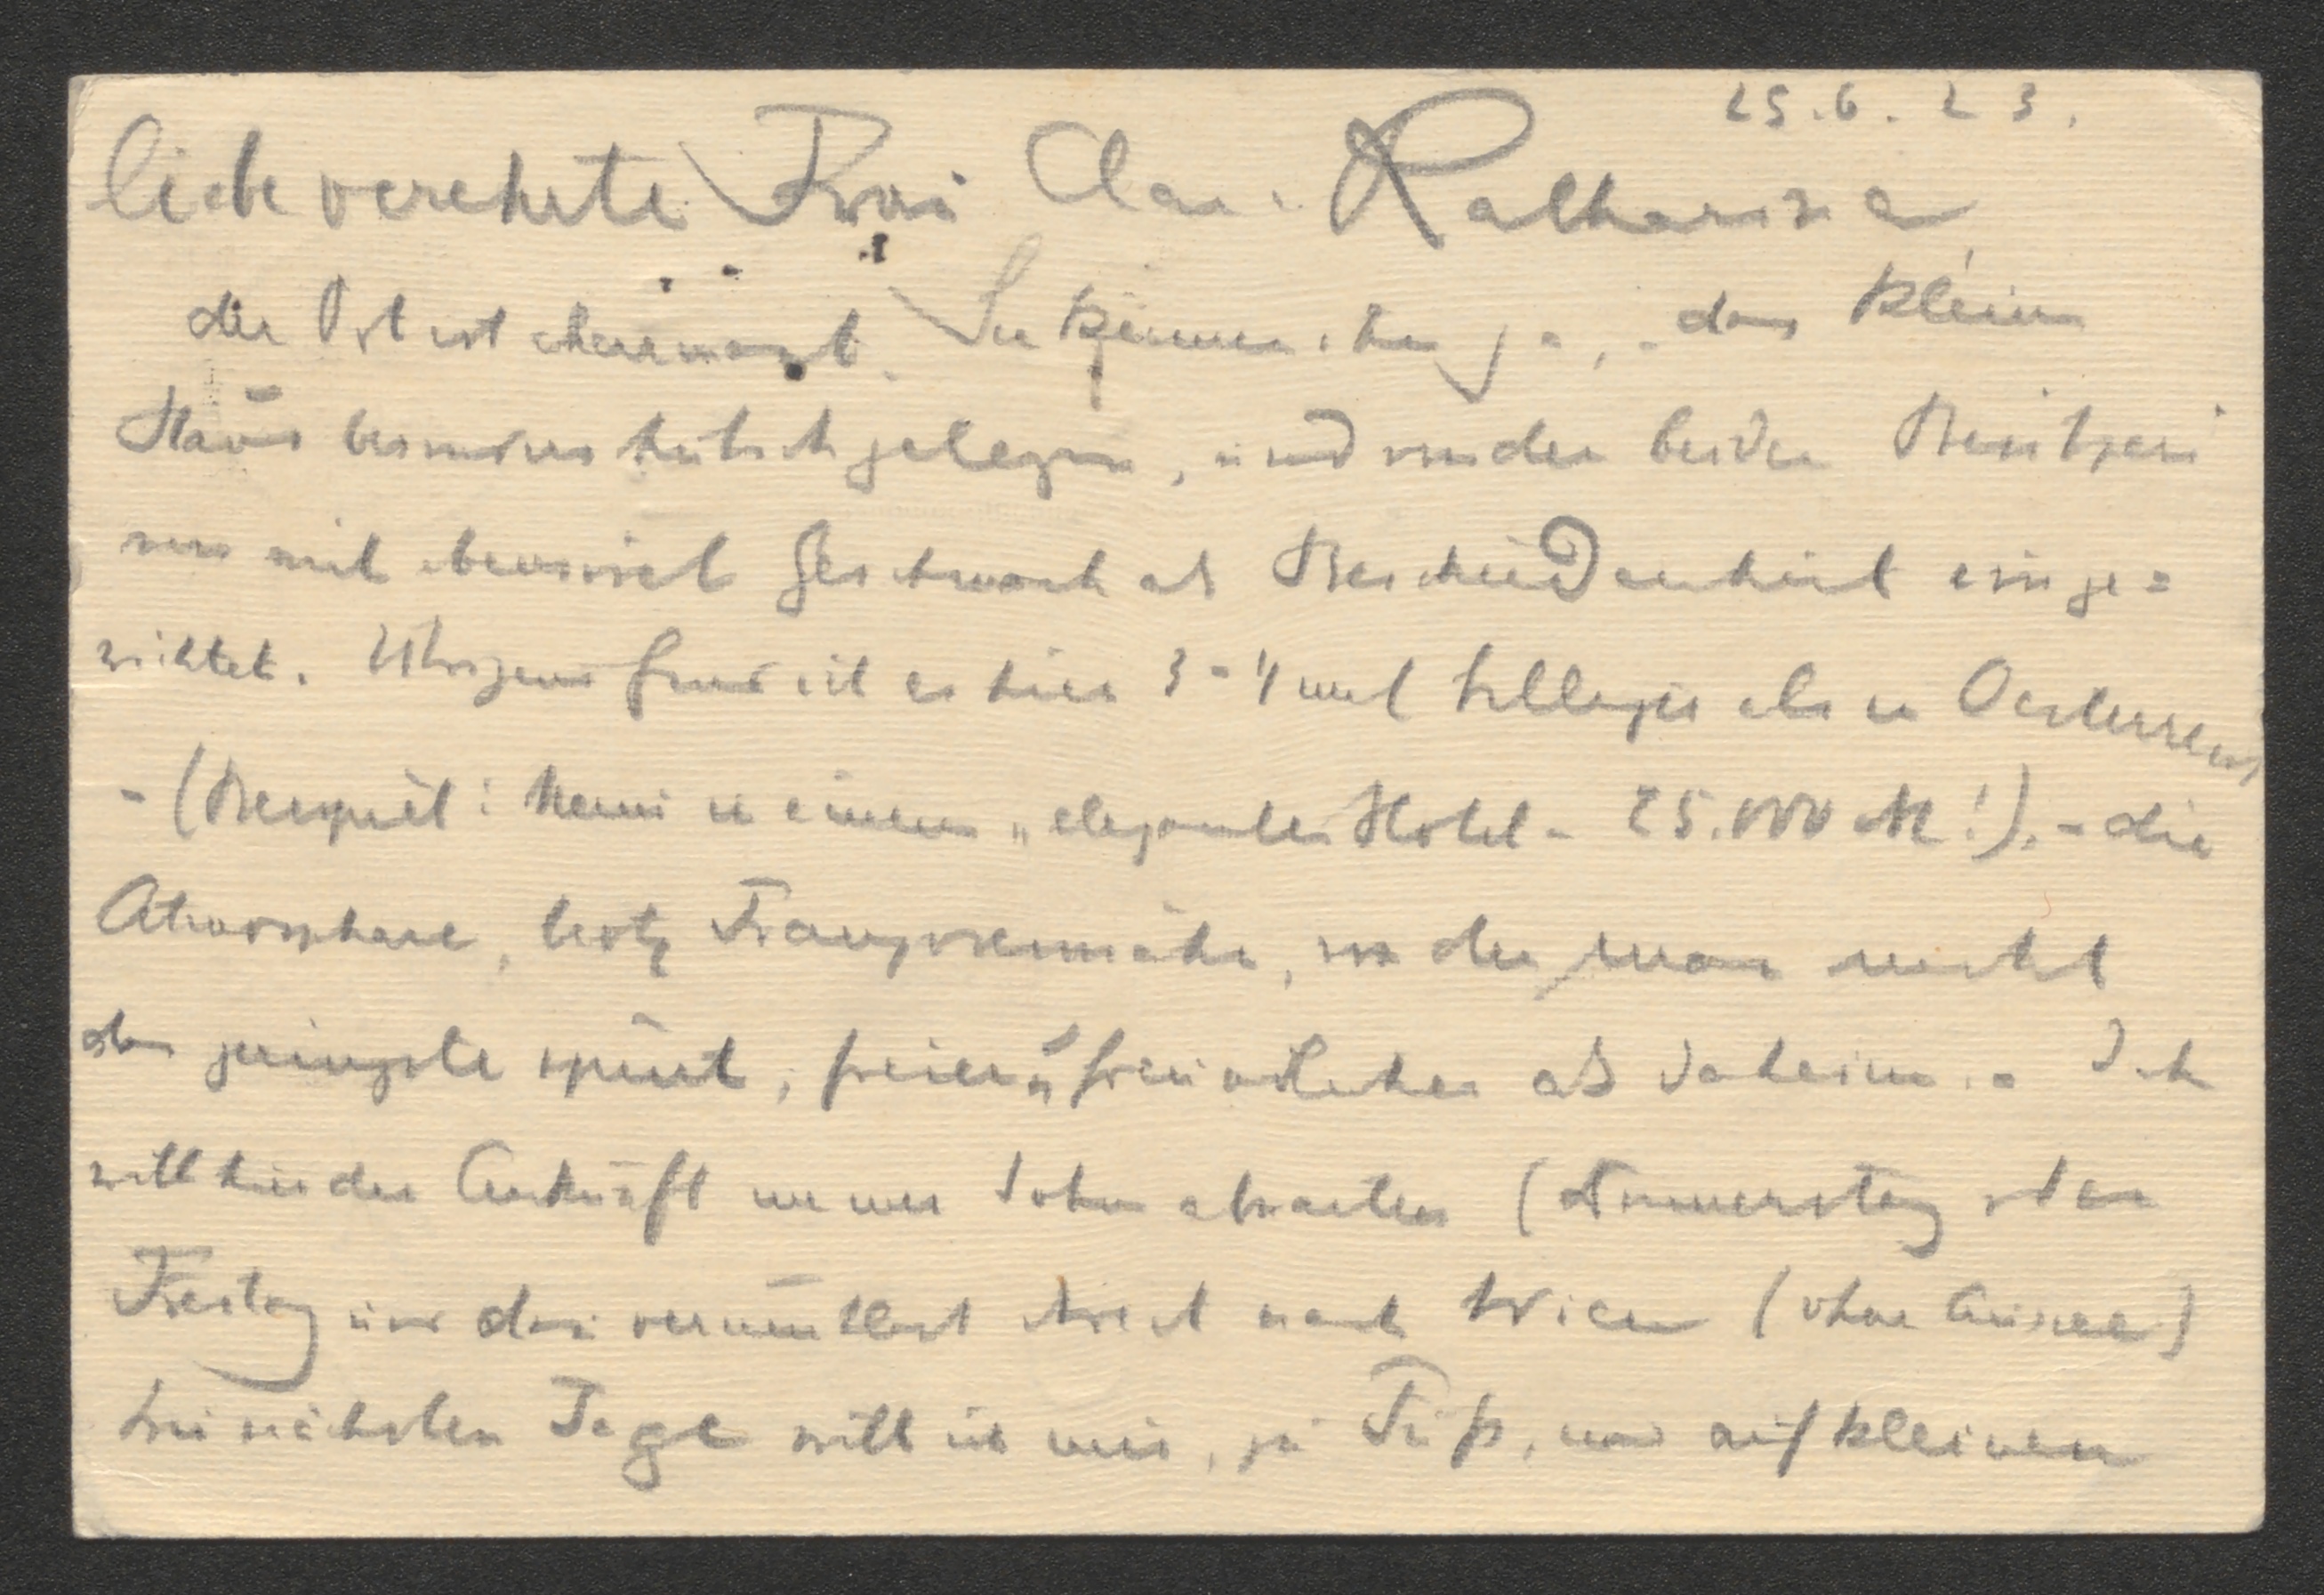 25.6.23.
liebe verehrte Frau Clara Katharina,
der Ort ist charmant. Sie kennen ihn ja, - das kleine
Haus besonders hübsch gelegen, und von den beiden Besitzerin
nen mit ebensoviel Geschmack als Bescheidenheit einge=
richtet. Übrigens ist es hier 3-4 mal billiger als in Oesterreich
- (Beispiel: Menu in einem „eleganten Hotel - 25.000 M!). - die
Atmosphäre, trotz Franzosennähe, von der man nicht
das geringste spürt, freier u freundlicher als daheim. - Ich
will hier die Ankunft meines Sohns abwarten (Donnerstag oder
Freitag und dann vermutlich direct nach Wien (ohne Aussee)
Die nächsten Tage will ich mir, zu Fuß, und auf kleinen